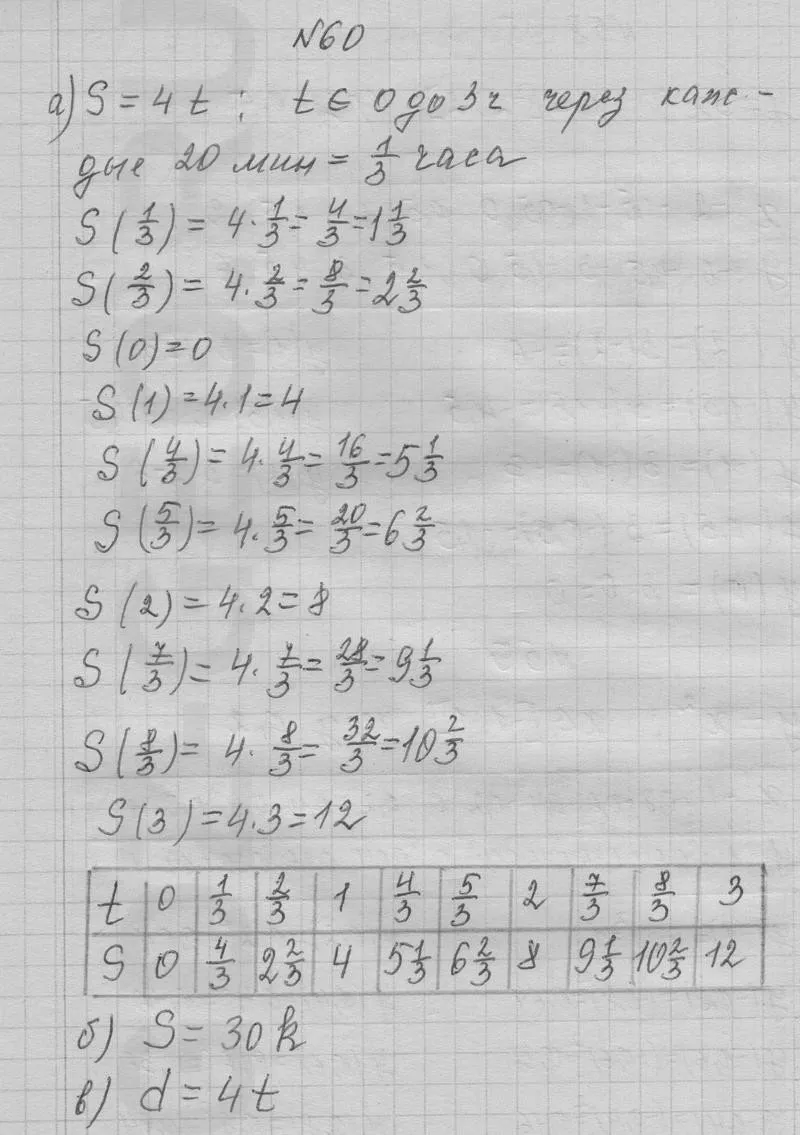 N60
а) S = 4t ; t ∈ 0 до 3 ч через каж-
дые 20 мин = 1/3 часа
S(1/3) = 4·1/3 = 4/3 = 1 1/3
S(2/3) = 4·2/3 = 8/3 = 2 2/3
S(0) = 0
S(1) = 4·1 = 4
S(4/3) = 4·4/3 = 16/3 = 5 1/3
S(5/3) = 4·5/3 = 20/3 = 6 2/3
S(2) = 4·2 = 8
S(7/3) = 4·7/3 = 28/3 = 9 1/3
S(8/3) = 4·8/3 = 32/3 = 10 2/3
S(3) = 4·3 = 12
t 0 1/3 2/3 1 4/3 5/3 2 7/3 8/3 3
S 0 4/3 2 2/3 4 5 1/3 6 2/3 8 9 1/3 10 2/3 12
б) S = 30k
в) d = 4t